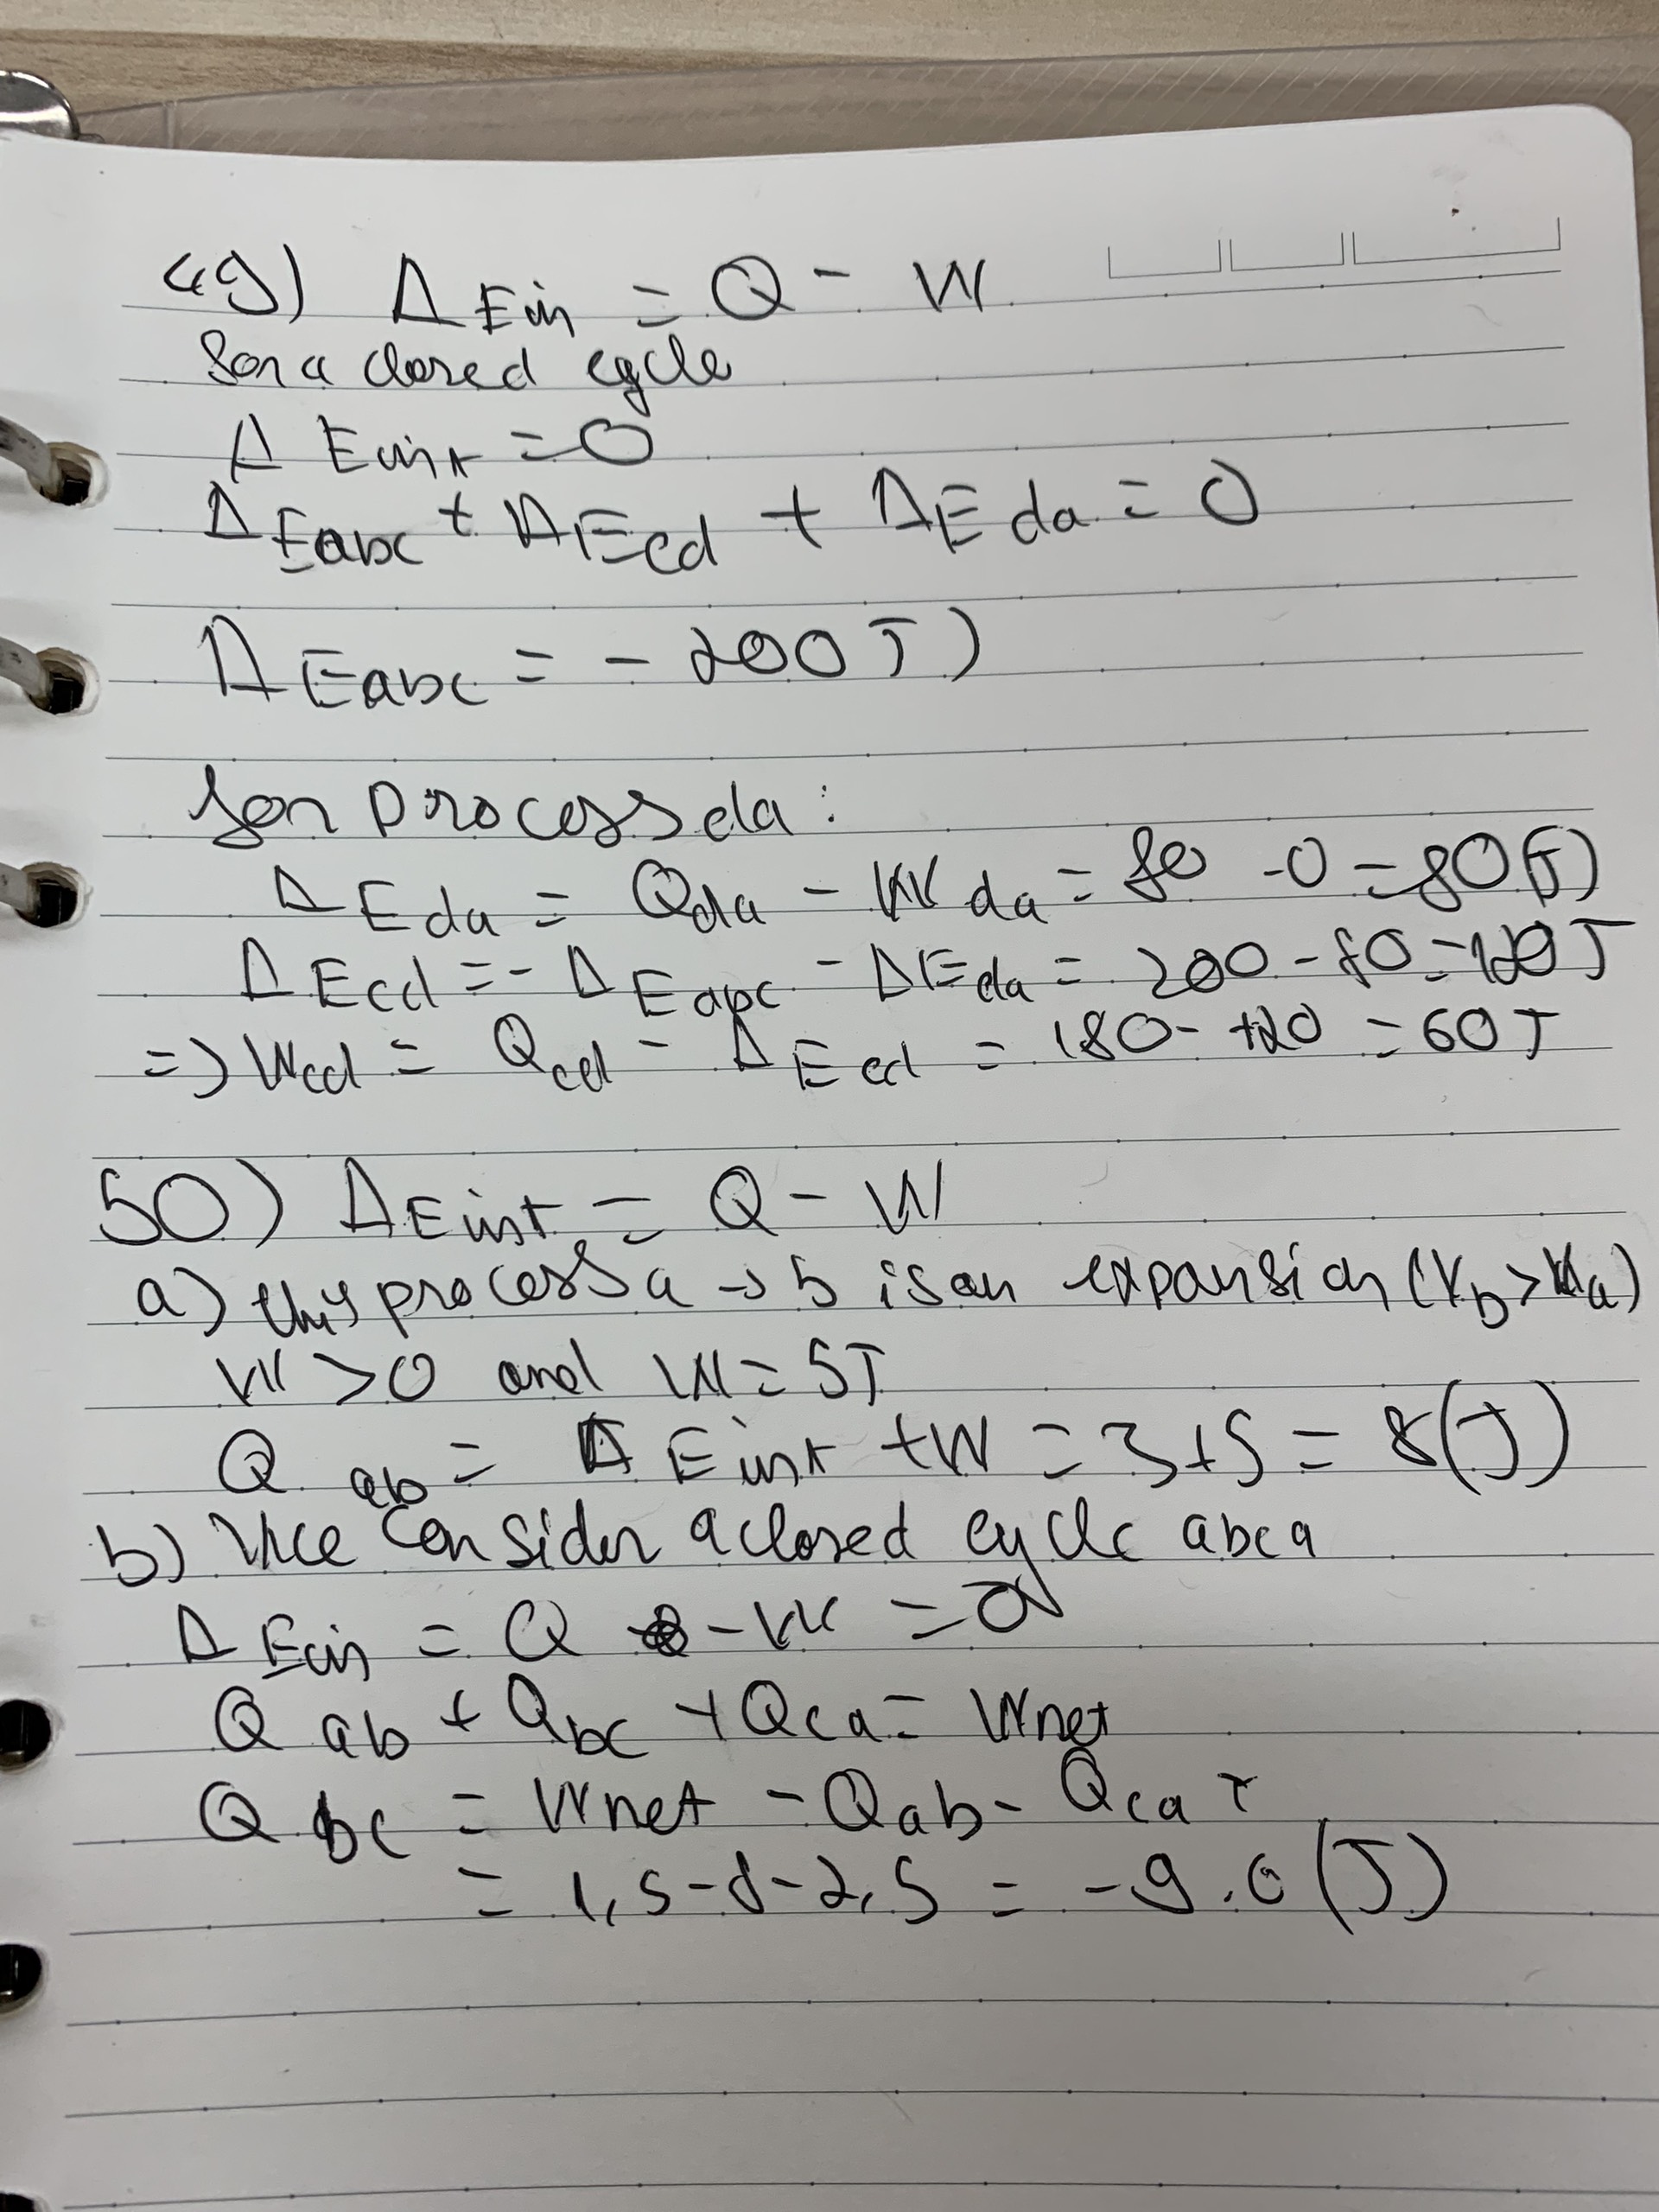 49) Δ Ein = Q - W
for a closed cycle
Δ Eint = 0
Δ Eabc + Δ Ecd + Δ Eda = 0
Δ Eabc = - 200 J)
for process da:
Δ Eda = Qda - Wda = 80 - 0 = 80 (J)
Δ Ecd = - Δ Eabc - Δ Eda = 200 - 80 = 120 J
=> Wcd = Qcd - Δ Ecd = 180 - 120 = 60 J
50) Δ Eint = Q - W
a) this process a → b is an expansion (Vb > Va)
W > 0 and W = 5J
Q ab = Δ Eint + W = 3 + 5 = 8 (J)
b) We consider a closed cycle abca
Δ Ein = Q - W = 0
Q ab + Qbc + Qca = Wnet
Q bc = Wnet - Qab - Qca
= 1,5 - 8 - 2,5 = - 9.0 (J)